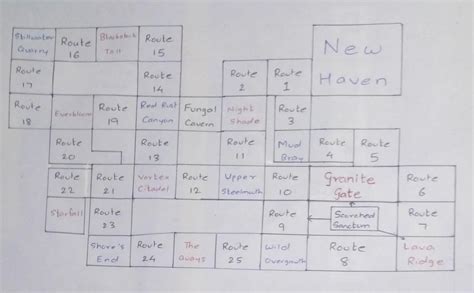 Stillwater Quarry
Route 16
Route 15
New Haven
Route 17
Route 14
Route 2
Route 1
Route 18
Everbloom
Route 19
Red Rust Canyon
Fungal Cavern
Night Shade
Route 3
Route 20
Route 13
Route 11
Mud Bray
Route 4
Route 5
Route 22
Route 21
Vortex Citadel
Route 12
Upper
Route 10
Granite Gate
Route 6
Starfall
Route 23
Route 9
Scorched Sanctum
Route 7
Shore's End
Route 24
The Quays
Route 25
Wild Overgrowth
Route 8
Lava Ridge